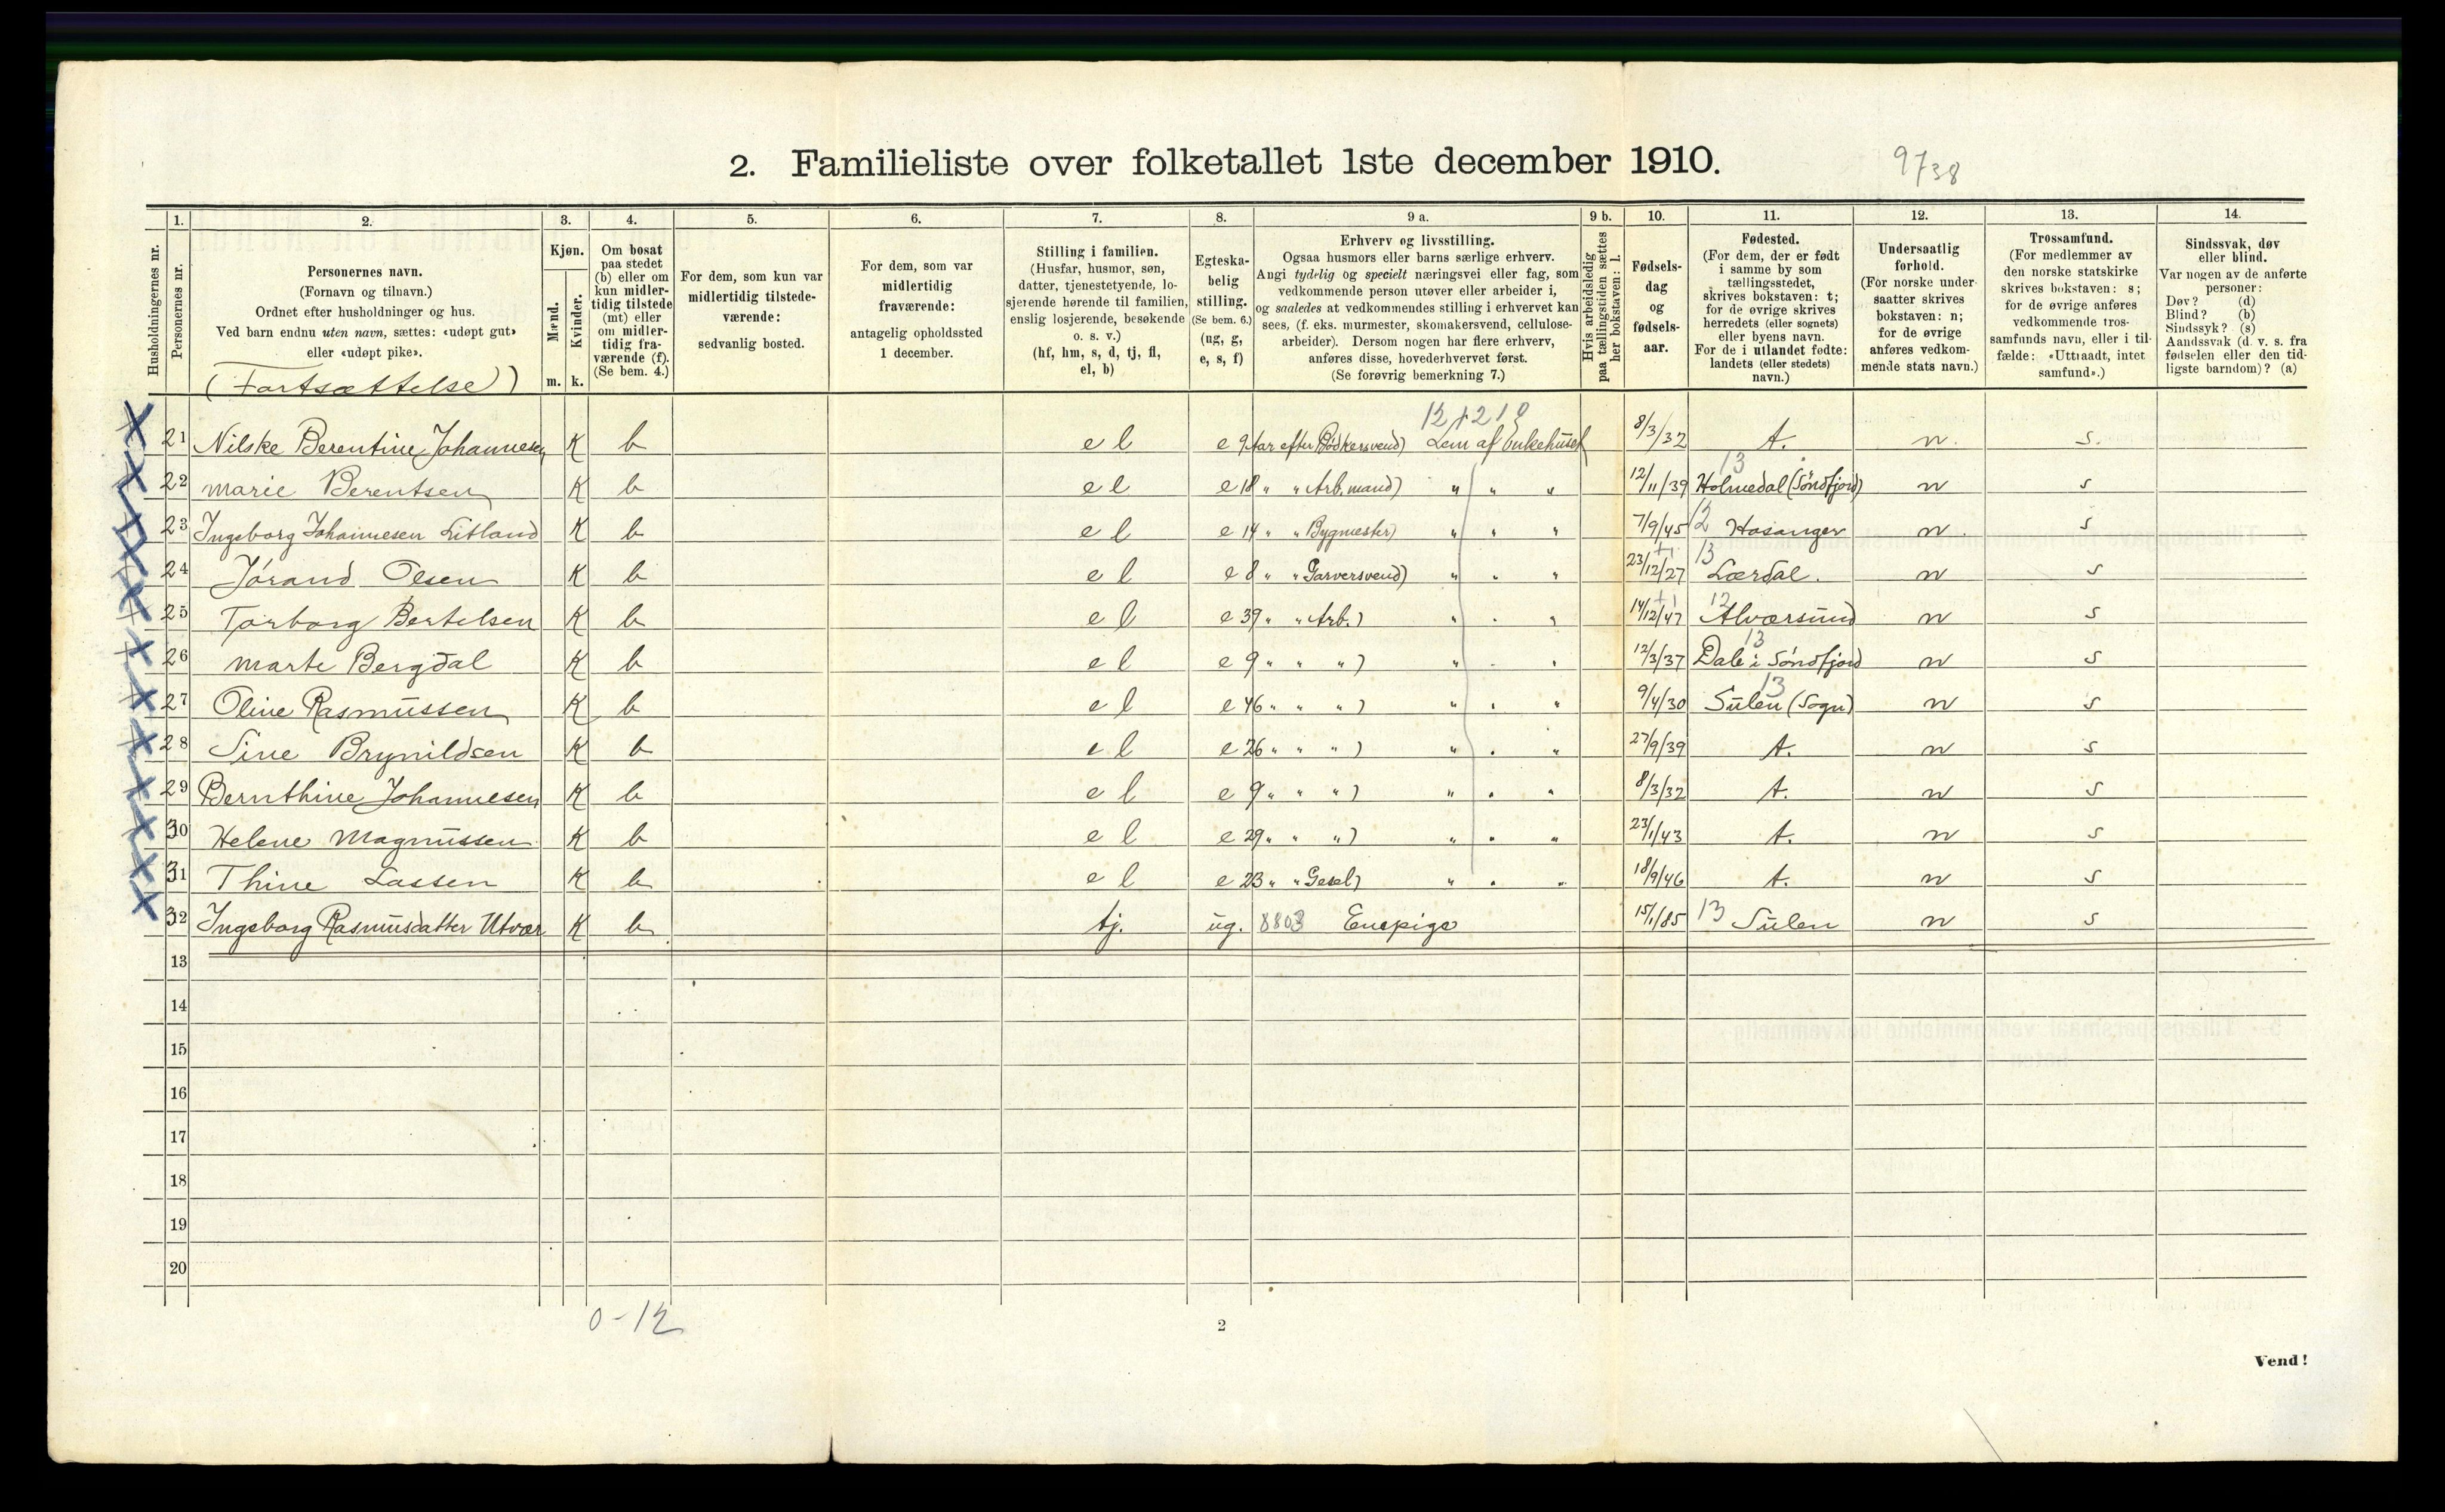 2. Familieliste over folketallet 1ste december 1910.
9738
1. 2. 3. 4. 5. 6. 7. 8. 9 a. 9 b. 10. 11. 12. 13. 14.
Husholdningernes nr.
Personernes nr.
Personernes navn.
(Fornavn og tilnavn.)
Ordnet efter husholdninger og hus.
Ved barn endnu uten navn, sættes: «udøpt gut»
eller «udøpt pike».
(Fortsættelse)
Kjøn.
Mænd.
Kvinder.
m. k.
Om bosat
paa stedet
(b) eller om
kun midler-
tidig tilstede
(mt) eller
om midler-
tidig fra-
værende (f).
(Se bem. 4.)
For dem, som kun var
midlertidig tilstede-
værende:
sedvanlig bosted.
For dem, som var
midlertidig
fraværende:
antagelig opholdssted
1 december.
Stilling i familien.
(Husfar, husmor, søn,
datter, tjenestetyende, lo-
sjerende hørende til familien,
enslig losjerende, besøkende
o. s. v.)
(hf, hm, s, d, tj, fl,
el, b)
Egteska-
belig
stilling.
(Se bem. 6.)
(ug, g,
e, s, f)
Erhverv og livsstilling.
Ogsaa husmors eller barns særlige erhverv.
Angi tydelig og specielt næringsvei eller fag, som
vedkommende person utøver eller arbeider i,
og saaledes at vedkommendes stilling i erhvervet kan
sees, (f. eks. murmester, skomakersvend, cellulose-
arbeider). Dersom nogen har flere erhverv,
anføres disse, hovederhvervet først.
(Se forøvrig bemerkning 7.)
Hvis arbeidsledig
paa tællingstiden sættes
her bokstaven: l.
Fødsels-
dag
og
fødsels-
aar.
Fødested.
(For dem, der er født
i samme by som
tællingsstedet,
skrives bokstaven: t;
for de øvrige skrives
herredets (eller sognets)
eller byens navn.
For de i utlandet fødte:
landets (eller stedets)
navn.)
Undersaatlig
forhold.
(For norske under-
saatter skrives
bokstaven: n;
for de øvrige
anføres vedkom-
mende stats navn.)
Trossamfund.
(For medlemmer av
den norske statskirke
skrives bokstaven: s;
for de øvrige anføres
vedkommende tros-
samfunds navn, eller i til-
fælde: «Uttraadt, intet
samfund».)
Sindssvak, døv
eller blind.
Var nogen av de anførte
personer:
Døv? (d)
Blind? (b)
Sindssyk? (s)
Aandssvak (d. v. s. fra
fødselen eller den tid-
ligste barndom)? (a)
21 Nilske Berentine Johannesen K b e l e 9 tar efter Bødkersvend) Lem af Enkehuset 8/3/32 t. n. s.
13
22 Marie Berentsen K b e l e 18 " " Arb.mand) " " " 12/11/39 Holmedal (Söndfjord) n s
23 Ingeborg Johannesen Litland K b e l e 14 " " Bygmester) " " " 7/9/45 12 Hosanger n. s
24 Jórand Olsen K b e l e 8 " " Garversvend) " " " 23/12/27 13 Lærdal. n s
25 Torborg Bertelsen K b e l e 39 " " Arb.) " " " 14/12/47 12 Alværsund n s
13
26 Marte Bergdal K b e l e 9 " " ") " " " 12/3/37 Dale i Söndfjord n s
13
27 Oline Rasmussen K b e l e 46 " " ") " " " 9/4/30 Sulen (Sogn) n s
28 Sine Brynildsen K b e l e 26 " " ") " " " 27/9/39 t. n s
29 Bernthine Johannesen K b e l e 9 " " ") " " " 8/3/32 t. n s
30 Helene Magnussen K b e l e 29 " " ") " " " 23/1/43 t. n s
31 Thine Lassen K b e l e 23 " " Gesel) " " " 18/9/46 t. n s
32 Ingeborg Rasmusdatter Utvær K b tj. ug. 8803 Enepige 15/1/85 13 Sulen n s
13
14
15
16
17
18
19
20
0-12
2
Vend!